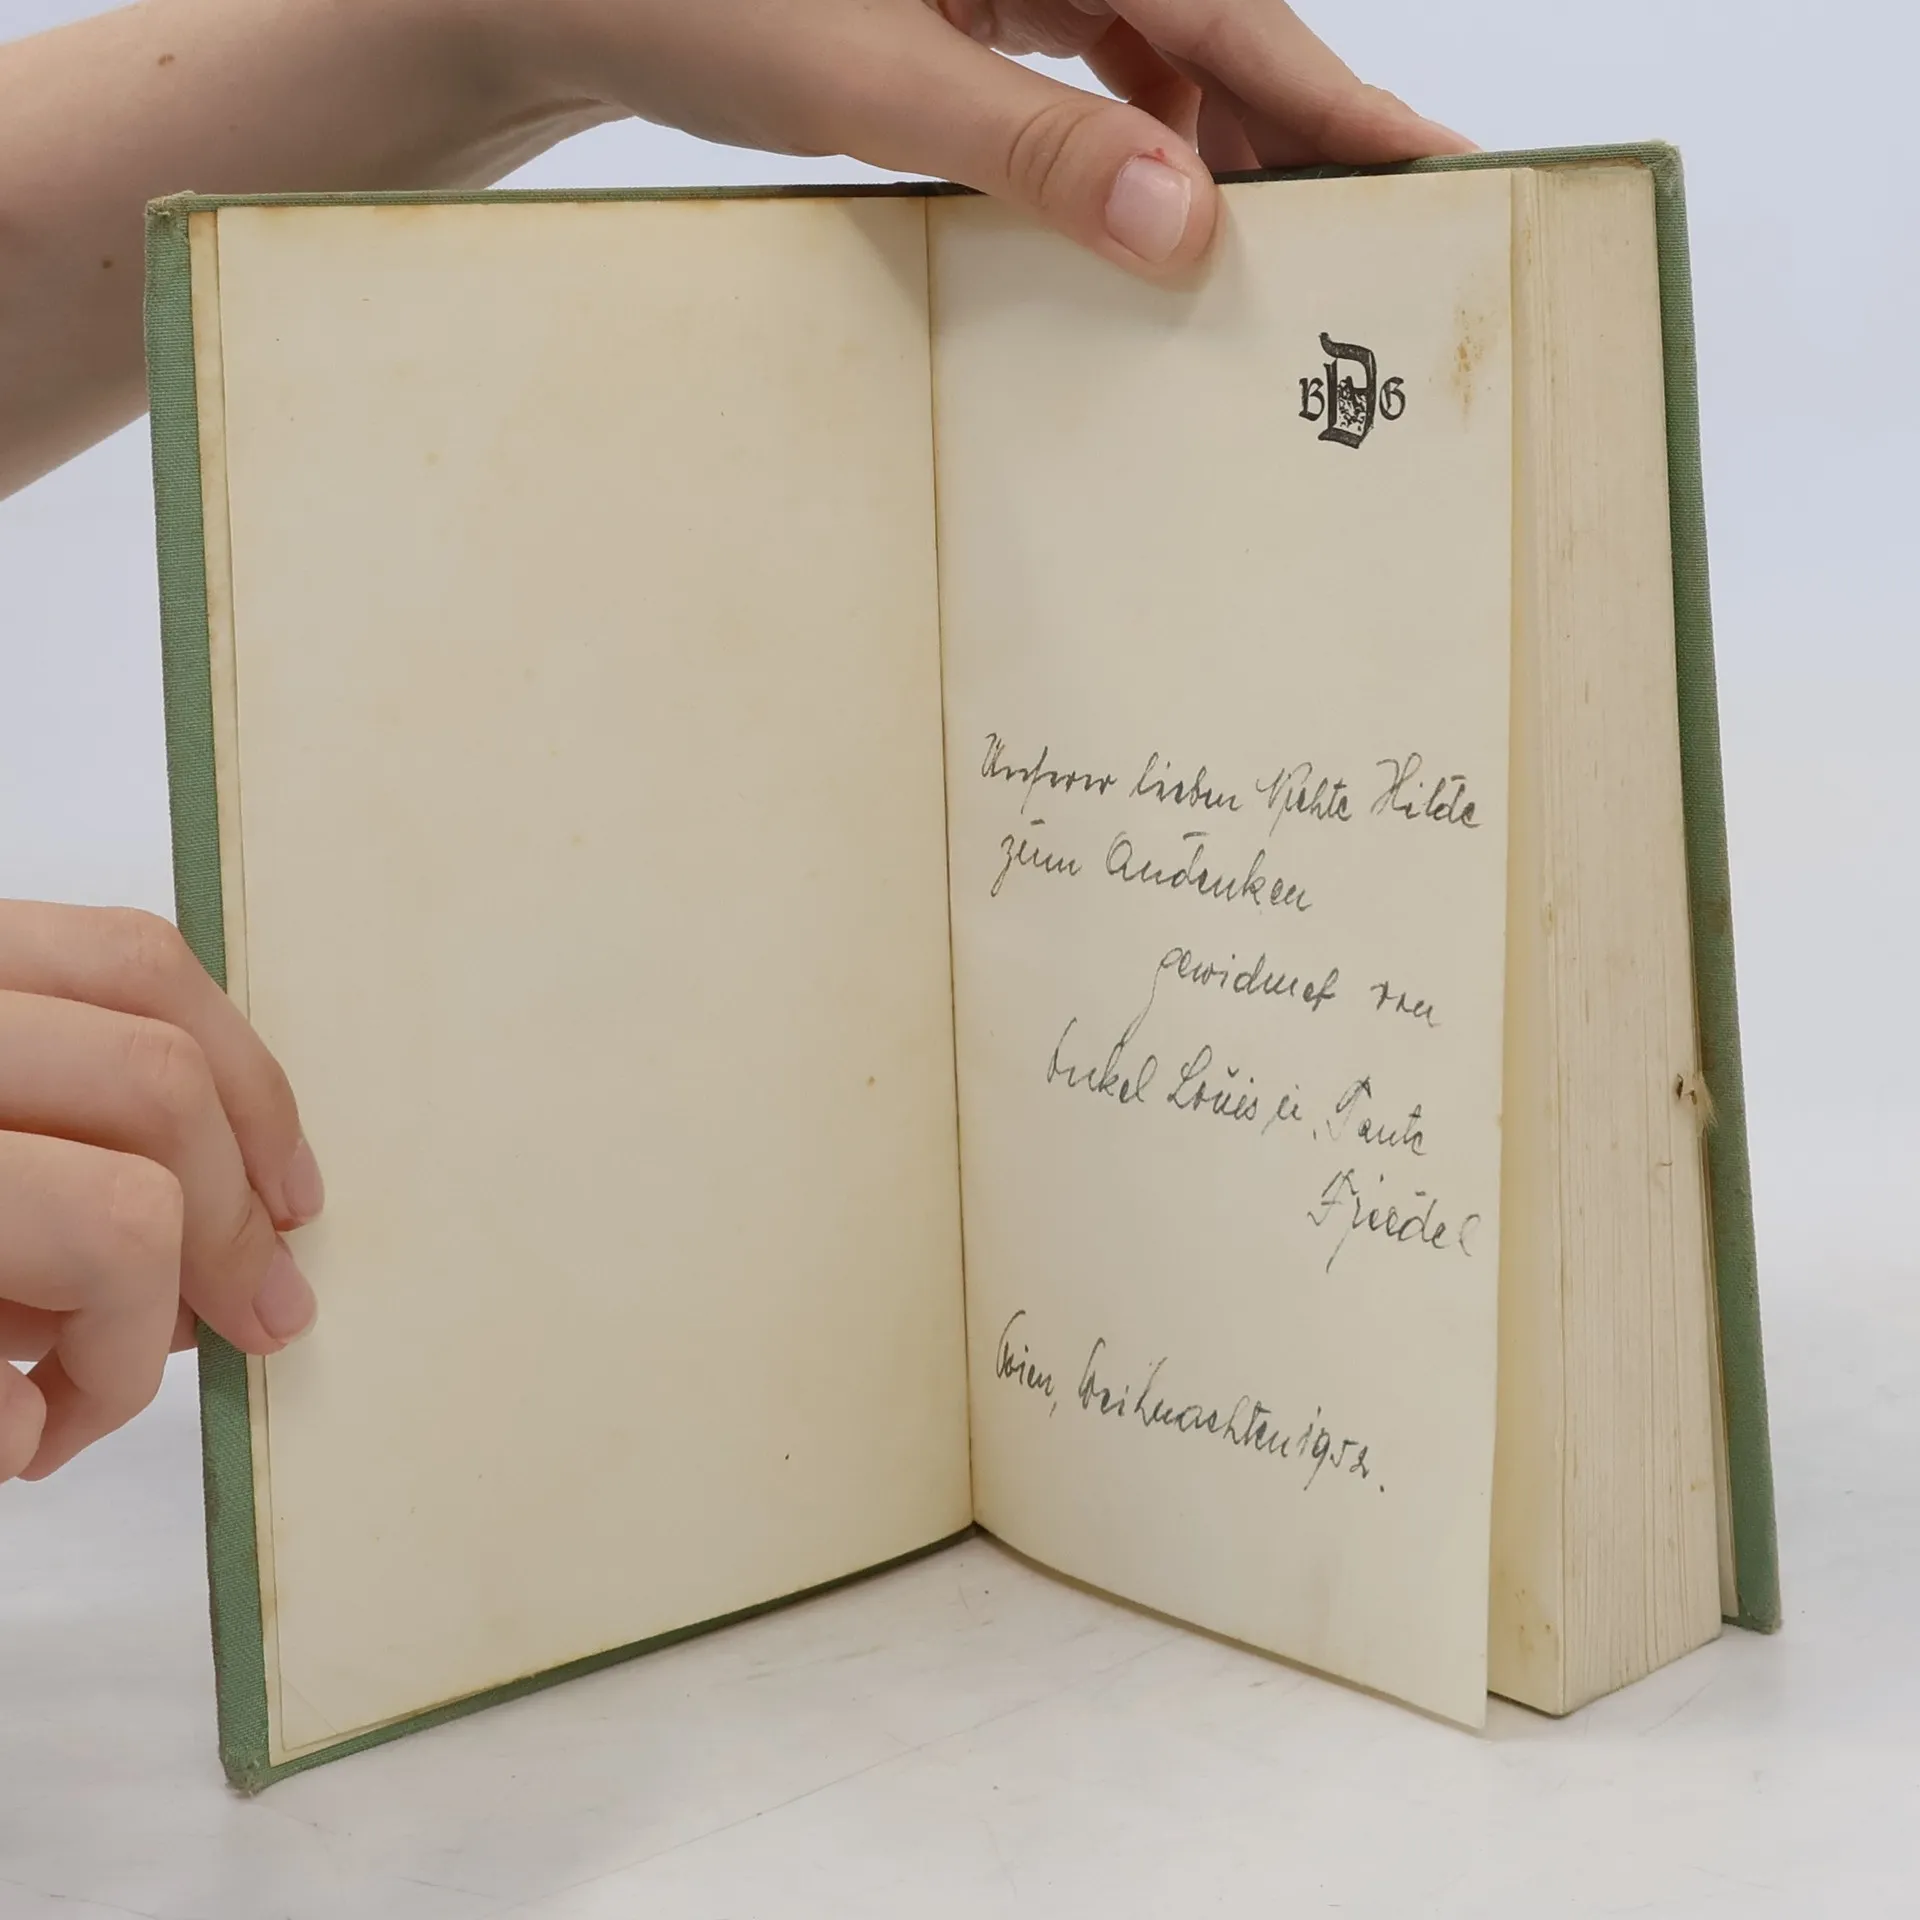 B D G
Unserer lieben Nichte Hilde
zum Andenken
gewidmet von
Onkel Louis u. Tante
Friedel
Wien, Weihnachten 1952.